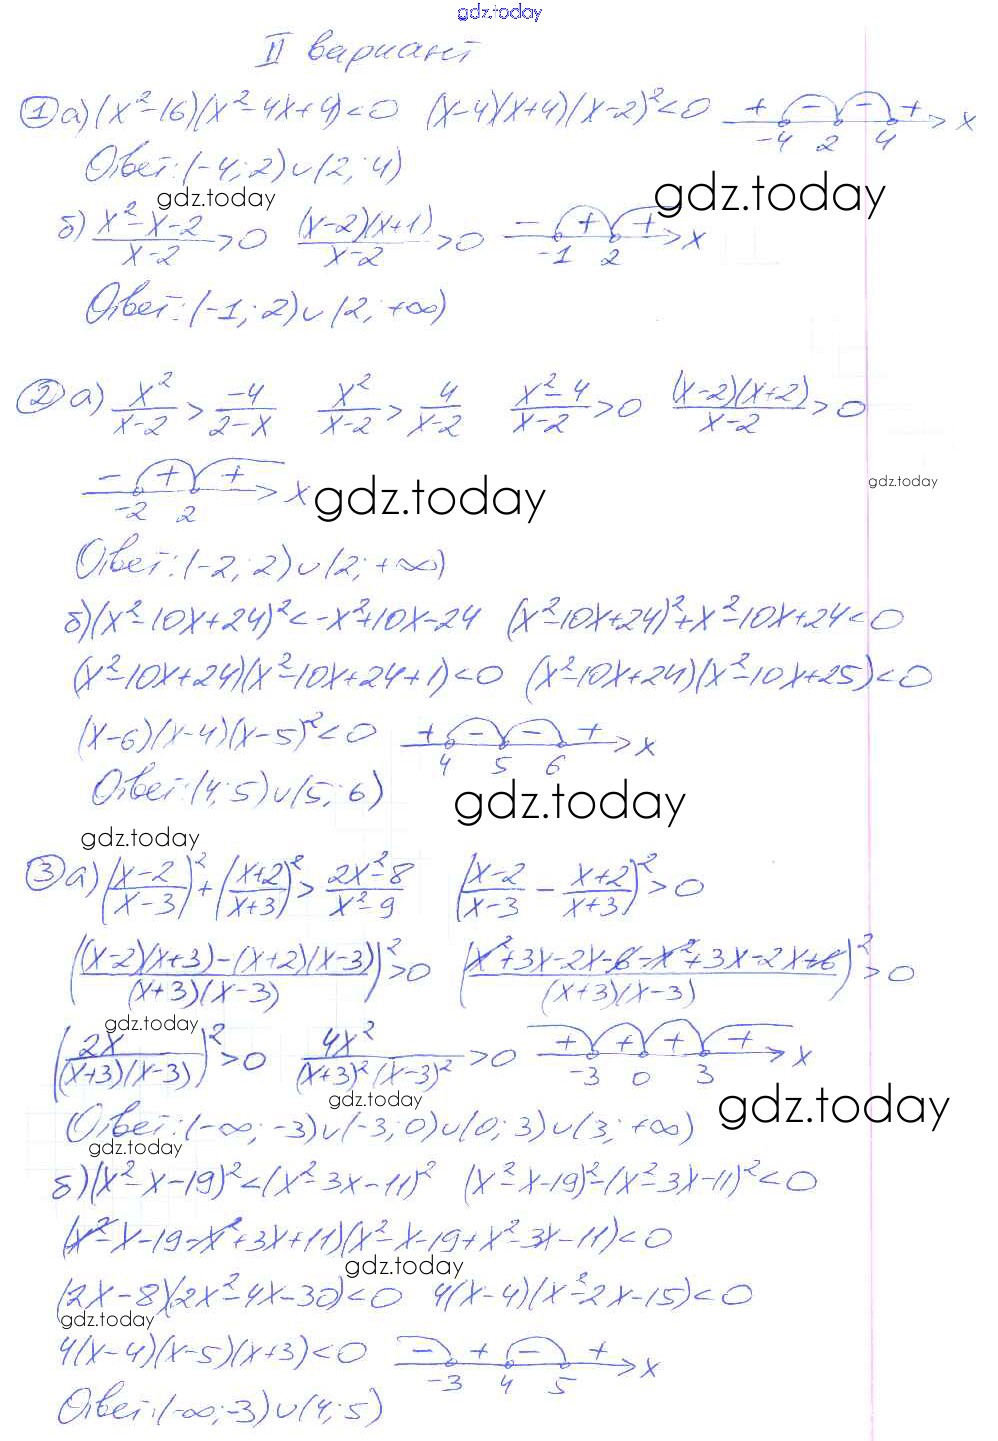 gdz.today
II вариант
① а) (x²-16)(x²-4x+4)<0 (x-4)(x+4)(x-2)²<0 + - - + -4 2 4 x
Ответ: (-4; 2)∪(2; 4)
gdz.today gdz.today
б) (x²-x-2)/(x-2)>0 ((x-2)(x+1))/(x-2)>0 - + + -1 2 x
Ответ: (-1; 2)∪(2; +∞)
② а) x²/(x-2) > -4/(2-x) x²/(x-2) > 4/(x-2) (x²-4)/(x-2)>0 ((x-2)(x+2))/(x-2)>0
- + + -2 2 x gdz.today gdz.today
Ответ: (-2; 2)∪(2; +∞)
б) (x²-10x+24)²<-x²+10x-24 (x²-10x+24)²+x²-10x+24<0
(x²-10x+24)(x²-10x+24+1)<0 (x²-10x+24)(x²-10x+25)<0
(x-6)(x-4)(x-5)²<0 + - - + 4 5 6 x
Ответ: (4; 5)∪(5; 6)
gdz.today
gdz.today
③ а) ((x-2)/(x-3))²+((x+2)/(x+3))²>(2x²-8)/(x²-9) ((x-2)/(x-3) - (x+2)/(x+3))²>0
(((x-2)(x+3)-(x+2)(x-3))/((x+3)(x-3)))²>0 ((x²+3x-2x-6-x²+3x-2x+6)/((x+3)(x-3)))²>0
gdz.today
(2x/((x+3)(x-3)))²>0 4x²/((x+3)²(x-3)²)>0 + + + + -3 0 3 x
gdz.today gdz.today
Ответ: (-∞; -3)∪(-3; 0)∪(0; 3)∪(3; +∞)
gdz.today
б) (x²-x-19)²<(x²-3x-11)² (x²-x-19)²-(x²-3x-11)²<0
(x²-x-19-x²+3x+11)(x²-x-19+x²-3x-11)<0
gdz.today
(2x-8)(2x²-4x-30)<0 4(x-4)(x²-2x-15)<0
gdz.today
4(x-4)(x-5)(x+3)<0 - + - + -3 4 5 x
Ответ: (-∞; -3)∪(4; 5)